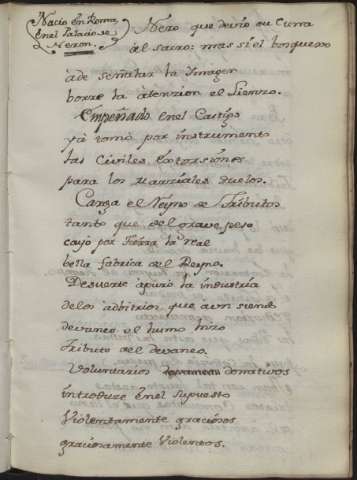 Nacio en Roma
en el Palacio de
Neron.
Nero que devio su cuna
al sacro: mas si el bosquexo
a de señalar la Ymagen
borre la atencion el Lienzo.
Empeñado en el Castigo
ya tomó por instrumento
las Civiles extorsiones
para los Marciales duelos.
Carga el Reyno de Tributos
tanto que del grave peso
cayó por tierra la real
bella fabrica del Reyno.
Desuerte apuró la industria
de los adbitrios, que aun siendo
devaneo el humo hizo
Tributo del devaneo.
Voluntarios donativos
introduce en el supuesto
Violentamente graciosos
graciosamente Violentos.